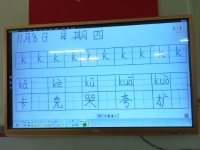 11月8日 星期四
k k k k k k k k k
kǎ kè kū kuā kuò
卡 克 哭 夸 扩